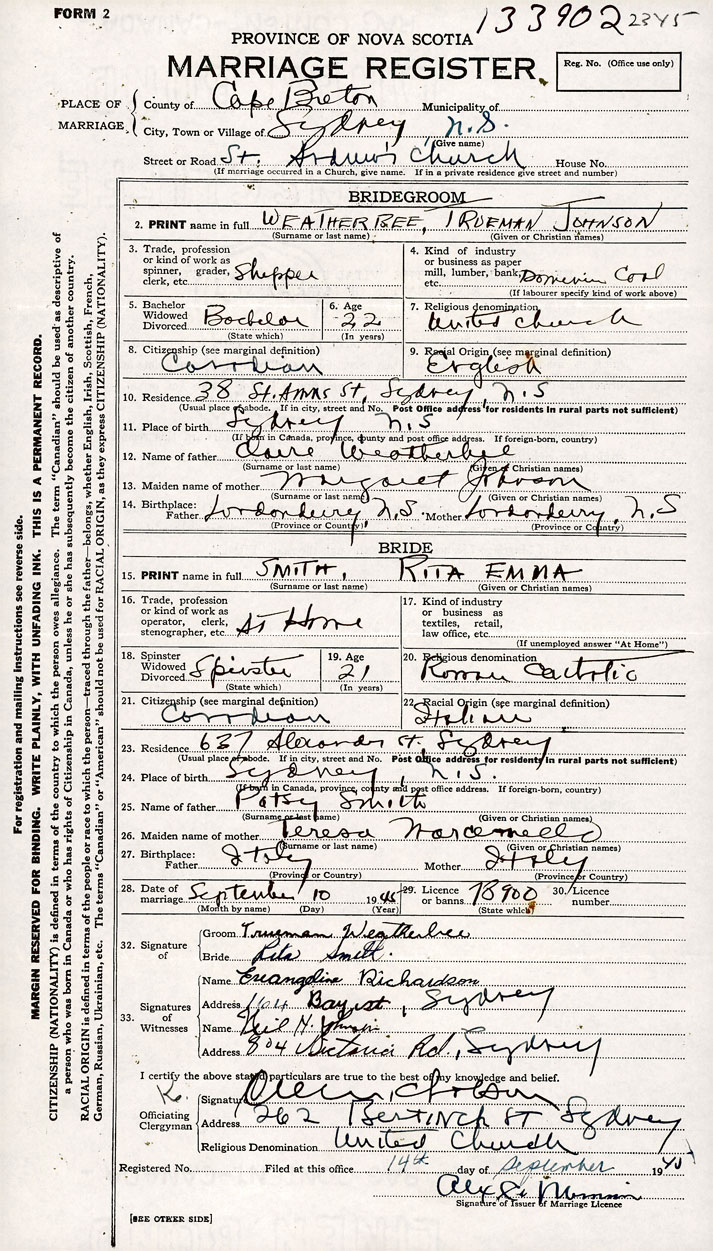 FORM 2
133902 2345
PROVINCE OF NOVA SCOTIA
MARRIAGE REGISTER
Reg. No. (Office use only)
PLACE OF MARRIAGE
County of Cape Breton Municipality of
City, Town or Village of Sydney N.S.
(Give name)
Street or Road St. Andrew's Church House No.
(If marriage occurred in a Church, give name. If in a private residence give street and number)
BRIDEGROOM
2. PRINT name in full WEATHERBEE, TRUEMAN JOHNSON
(Surname or last name) (Given or Christian names)
3. Trade, profession or kind of work as spinner, grader, clerk, etc. Shipper
4. Kind of industry or business as paper mill, lumber, bank, etc. Dominion Coal
(If labourer specify kind of work above)
5. Bachelor Widowed Divorced Bachelor
(State which)
6. Age 22
(In years)
7. Religious denomination United Church
8. Citizenship (see marginal definition) Canadian
9. Racial Origin (see marginal definition) English
10. Residence 38 St. Anns St, Sydney, N.S
(Usual place of abode. If in city, street and No. Post Office address for residents in rural parts not sufficient)
11. Place of birth Sydney N.S
(If born in Canada, province, county and post office address. If foreign-born, country)
12. Name of father Weatherbee
(Surname or last name) (Given or Christian names)
13. Maiden name of mother Margaret Johnson
(Surname or last name) (Given or Christian names)
14. Birthplace: Father Londonderry, N.S. Mother Londonderry, N.S
(Province or Country) (Province or Country)
BRIDE
15. PRINT name in full SMITH, RITA EMMA
(Surname or last name) (Given or Christian names)
16. Trade, profession or kind of work as operator, clerk, stenographer, etc. At Home
17. Kind of industry or business as textiles, retail, law office, etc.
(If unemployed answer "At Home")
18. Spinster Widowed Divorced Spinster
(State which)
19. Age 21
(In years)
20. Religious denomination Roman Catholic
21. Citizenship (see marginal definition) Canadian
22. Racial Origin (see marginal definition) Italian
23. Residence 637 Alexander St, Sydney
(Usual place of abode. If in city, street and No. Post Office address for residents in rural parts not sufficient)
24. Place of birth Sydney, N.S.
(If born in Canada, province, county and post office address. If foreign-born, country)
25. Name of father Patsy Smith
(Surname or last name) (Given or Christian names)
26. Maiden name of mother Teresa
(Surname or last name) (Given or Christian names)
27. Birthplace: Father Italy Mother Italy
(Province or Country) (Province or Country)
28. Date of marriage September 10 19
(Month by name) (Day) (Year)
29. Licence or banns 78900
(State which)
30. Licence number
32. Signature of
Groom Trueman Weatherbee
Bride Rita Smith.
33. Signatures of Witnesses
Name Evangeline Richardson
Address Bay st, Sydney
Name Neil
Address 804 Victoria Rd, Sydney
I certify the above stated particulars are true to the best of my knowledge and belief.
Officiating Clergyman
Signature
Address 262 Bentinck St Sydney
Religious Denomination United Church
Registered No. Filed at this office 14th day of September 1940
Signature of Issuer of Marriage Licence
[SEE OTHER SIDE]
For registration and mailing instructions see reverse side.
MARGIN RESERVED FOR BINDING. WRITE PLAINLY, WITH UNFADING INK. THIS IS A PERMANENT RECORD.
CITIZENSHIP (NATIONALITY) is defined in terms of the country to which the person owes allegiance. The term "Canadian" should be used as descriptive of
a person who was born in Canada or who has rights of Citizenship in Canada, unless he or she has subsequently become the citizen of another country.
RACIAL ORIGIN is defined in terms of the people or race to which the person—traced through the father—belongs, whether English, Irish, Scottish, French,
German, Russian, Ukrainian, etc. The terms "Canadian" or "American" should not be used for RACIAL ORIGIN, as they express CITIZENSHIP (NATIONALITY).